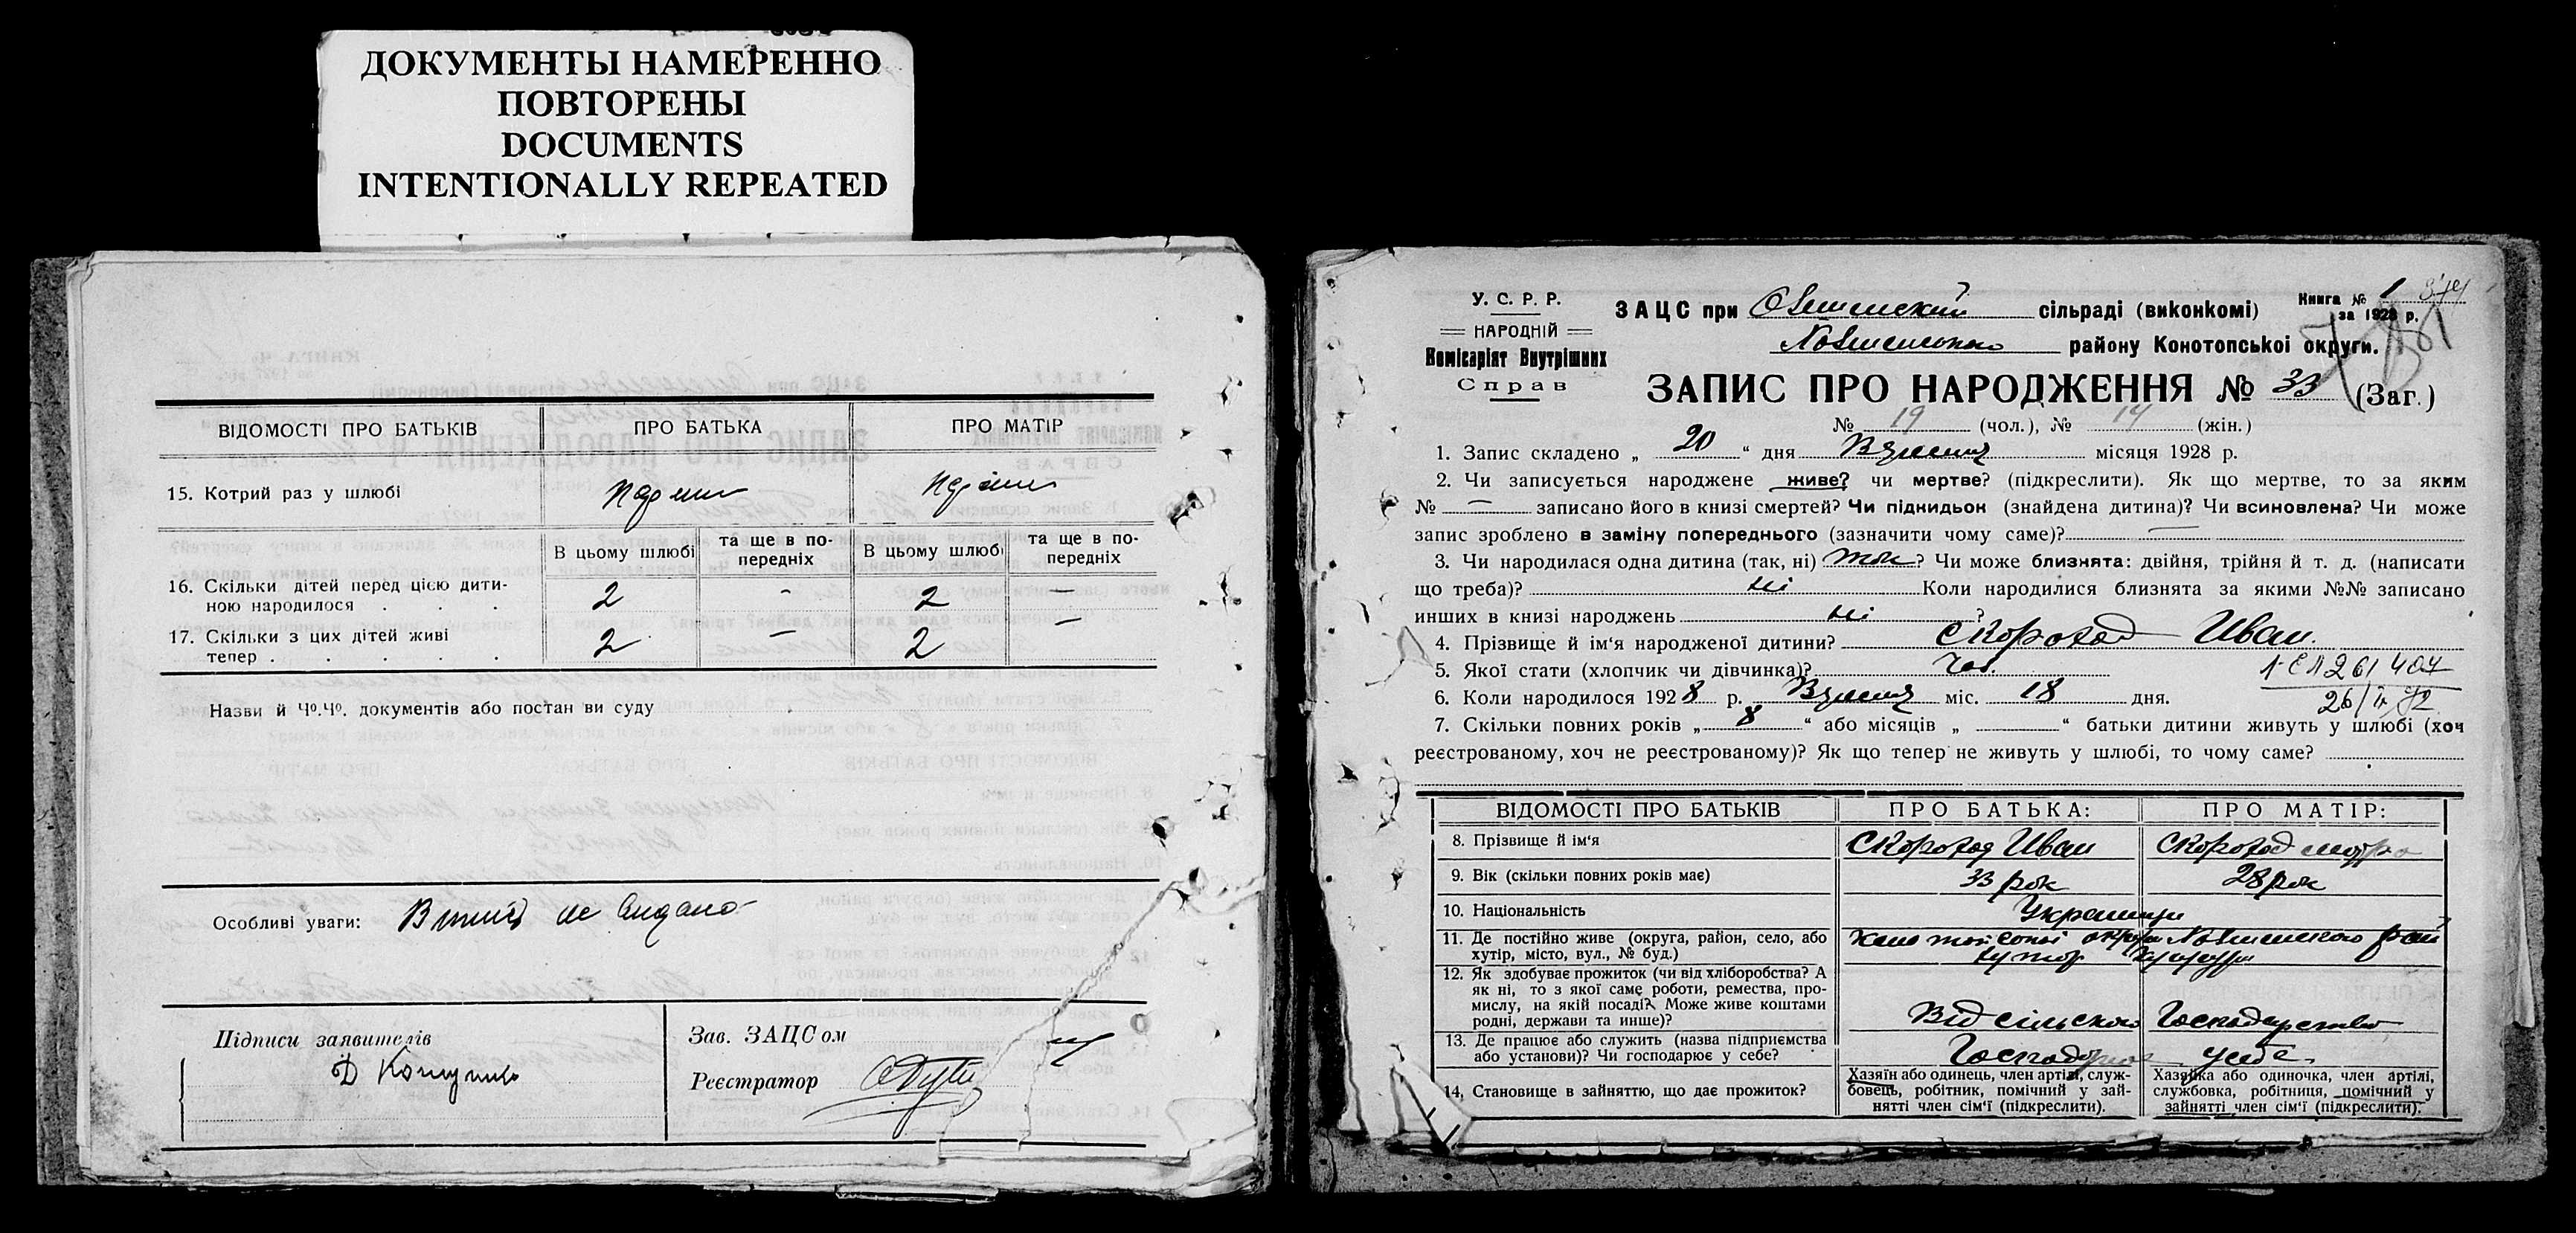 ДОКУМЕНТЫ НАМЕРЕННО
ПОВТОРЕНЫ
DOCUMENTS
INTENTIONALLY REPEATED
ВІДОМОСТІ ПРО БАТЬКІВ ПРО БАТЬКА ПРО МАТІР
15. Котрий раз у шлюбі
В цьому шлюбі та ще в по-передніх В цьому шлюбі та ще в по-передніх
16. Скільки дітей перед цією дити-
ною народилося . . . 2 - 2 —
17. Скільки з цих дітей живі
тепер . . . . . 2 — 2 —
Назви й Чо.Чо. документів або постан ви суду
Особливі уваги:
Підписи заявителів
Зав. ЗАЦСом
Реєстратор
У. С. Р. Р.
НАРОДНІЙ
Комісаріят Внутрішних
Справ
ЗАЦС при сільраді (виконкомі)
Книга № 1
за 1928 р.
району Конотопської округи.
ЗАПИС ПРО НАРОДЖЕННЯ № 33 (Заг.)
№ 19 (чол.), № 14 (жін.)
1. Запис складено „ 20 “ дня Вересня місяця 1928 р.
2. Чи записується народжене живе? чи мертве? (підкреслити). Як що мертве, то за яким
№ — записано його в книзі смертей? Чи підкидьок (знайдена дитина)? Чи всиновлена? Чи може
запис зроблено в заміну попереднього (зазначити чому саме)? —
3. Чи народилася одна дитина (так, ні) так? Чи може близнята: двійня, трійня й т. д. (написати
що треба)? ні Коли народилися близнята за якими №№ записано
инших в книзі народжень ні ?
4. Прізвище й ім‘я народженої дитини? Скороход Иван.
5. Якої стати (хлопчик чи дівчинка)? Чол.
6. Коли народилося 1928 р. Вересня міс. 18 дня.
7. Скільки повних років „ 8 “ або місяців „ — “ батьки дитини живуть у шлюбі (хоч
реєстрованому, хоч не реєстрованому)? Як що тепер не живуть у шлюбі, то чому саме?
ВІДОМОСТІ ПРО БАТЬКІВ ПРО БАТЬКА: ПРО МАТІР:
8. Прізвище й ім‘я Скороход Иван Скороход
9. Вік (скільки повних років має) 33 рок 28 рок
10. Національність Украинци
11. Де постійно живе (округа, район, село, або
хутір, місто, вул., № буд.)
12. Як здобуває прожиток (чи від хліборобства? А
як ні, то з якої саме роботи, ремества, про-
мислу, на якій посаді? Може живе коштами
родні, держави та инше)? Від сільского Господарства
13. Де працює або служить (назва підприємства
або установи)? Чи господарює у себе? у себе
14. Становище в зайняттю, що дає прожиток?
Хазяїн або одинець, член артілі, служ-
бовець, робітник, помічний у зай-
нятті член сім‘ї (підкреслити).
Хазяйка або одиночка, член артілі,
службовка, робітниця, помічний у
зайнятті член сім‘ї (підкреслити).